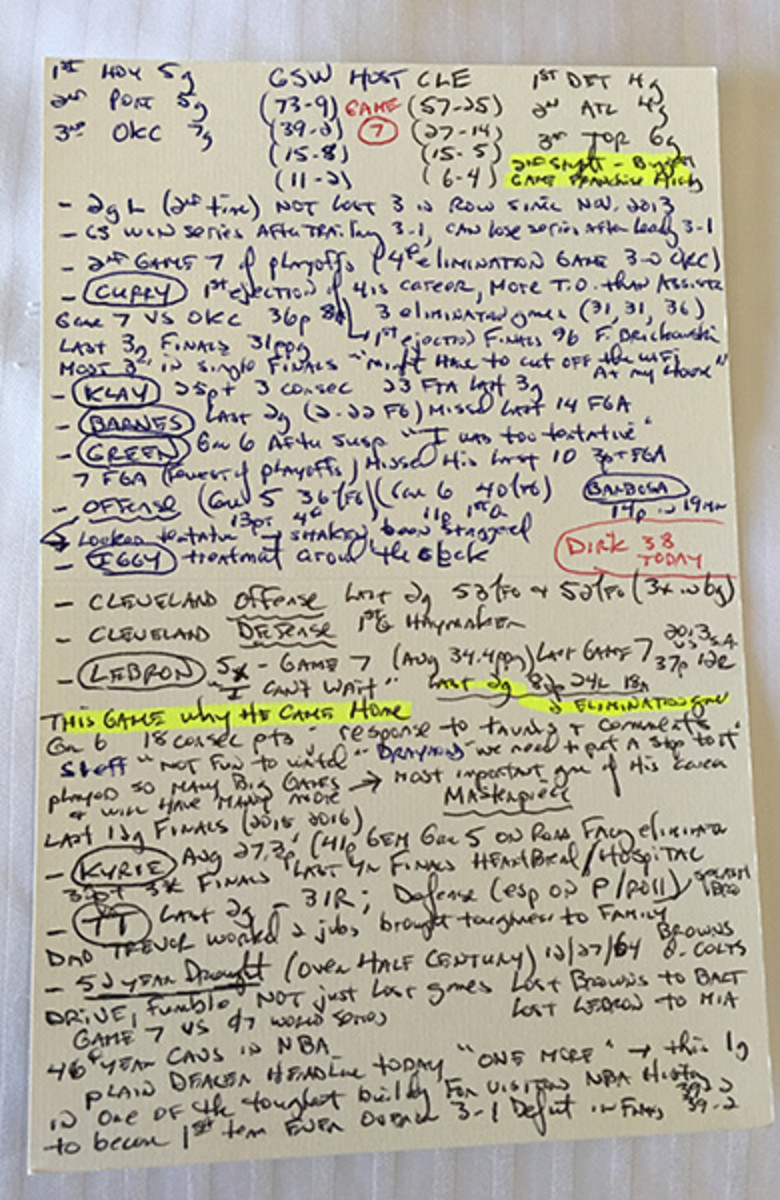 1ST HOU 5g GSW HOST CLE 1ST DET 4g
2nd PORT 5g (73-9) GAME (57-25) 2nd ATL 4g
3rd OKC 7g (39-2) 7 (27-14) 3rd TOR 6g
(15-8) (15-5) 2nd Straight - Biggest
(11-2) (6-4) GAME FRANCHISE History
- 2g L (2nd time) NOT LOST 3 in ROW SINCE NOV. 2013
- GS WIN SERIES AFTER TRAILing 3-1, CAN lose series AFTER Leading 3-1
- 2nd GAME 7 of playoffs (4th elimination GAME 3-0 OKC)
- CURRY 1st ejection of His career, More T.O. than Assists
Game 7 VS OKC 36p 8A 3 elimination games (31, 31, 36)
LAST 3g FINALS 31ppg 1st ejected FINALS 96 F. Brickowski
MOST 3's in single FINALS "might HAVE to cut off the WIFI
AT my House"
- KLAY 25pt 3 consec 23 FTA LAST 3g
- BARNES LAST 2g (2-22 FG) MISSED LAST 14 FGA
- GREEN Gm 6 After susp "I was too tentative"
7 FGA (Fewest of playoffs) Missed His last 10 3pt FGA
- OFFENSE (Gm 5 36%FG) (Gm 6 40%FG) BARBOSA
13pt 4Q 11p 1st Q 14p in 19mn
Looked tentative → SHAKEN, been staggered
- IGGY treatment around the clock DIRK 38
TODAY
- CLEVELAND OFFENSE LAST 2g 53%FG & 52%FG (3x in 6g)
- CLEVELAND DEFENSE 1st Q HAYMAKER
- LEBRON 5x - GAME 7 (Avg 34.4ppg) LAST GAME 7 2013 VS S.A.
37p 12R
"I CAN'T WAIT" LAST 2g 82p 24R 18A
2 ELIMINATION games
THIS GAME WHY HE CAME HOME
Gm 6 18 consec pts - response to taunts & comments
Steff "NOT FUN to watch" DRAYMOND "we need to put a stop to it"
played so many Big GAMES → most important game of His career
& will HAVE MANY more MASTERPIECE
LAST 12g FINALS (2015 2016)
- KYRIE Avg 27.2p (41p GEM Gm 5 ON ROAD Facing elimination
30pt 3x FINALS LAST yr FINALS HEARTBREAK/HOSPITAL
- TT LAST 2g - 31R; Defense (esp ON P/Roll) SPLASH BRO
DAD TREVOR worked 2 jobs, brought toughness to FAMILY
- 52 YEAR Drought (over HALF CENTURY) 12/27/64 BROWNS
0-COLTS
DRIVE, Fumble, NOT just Lost games Lost Browns to BALT
GAME 7 VS 97 WORLD SERIES LOST LEBRON TO MIA
46th YEAR CAVS in NBA
PLAIN DEALER HEADLine TODAY "ONE MORE" → this 1g
in one of the toughest building FOR VISITORS NBA History
to become 1st team EVER Overcome 3-1 Deficit in FINALS 39-2